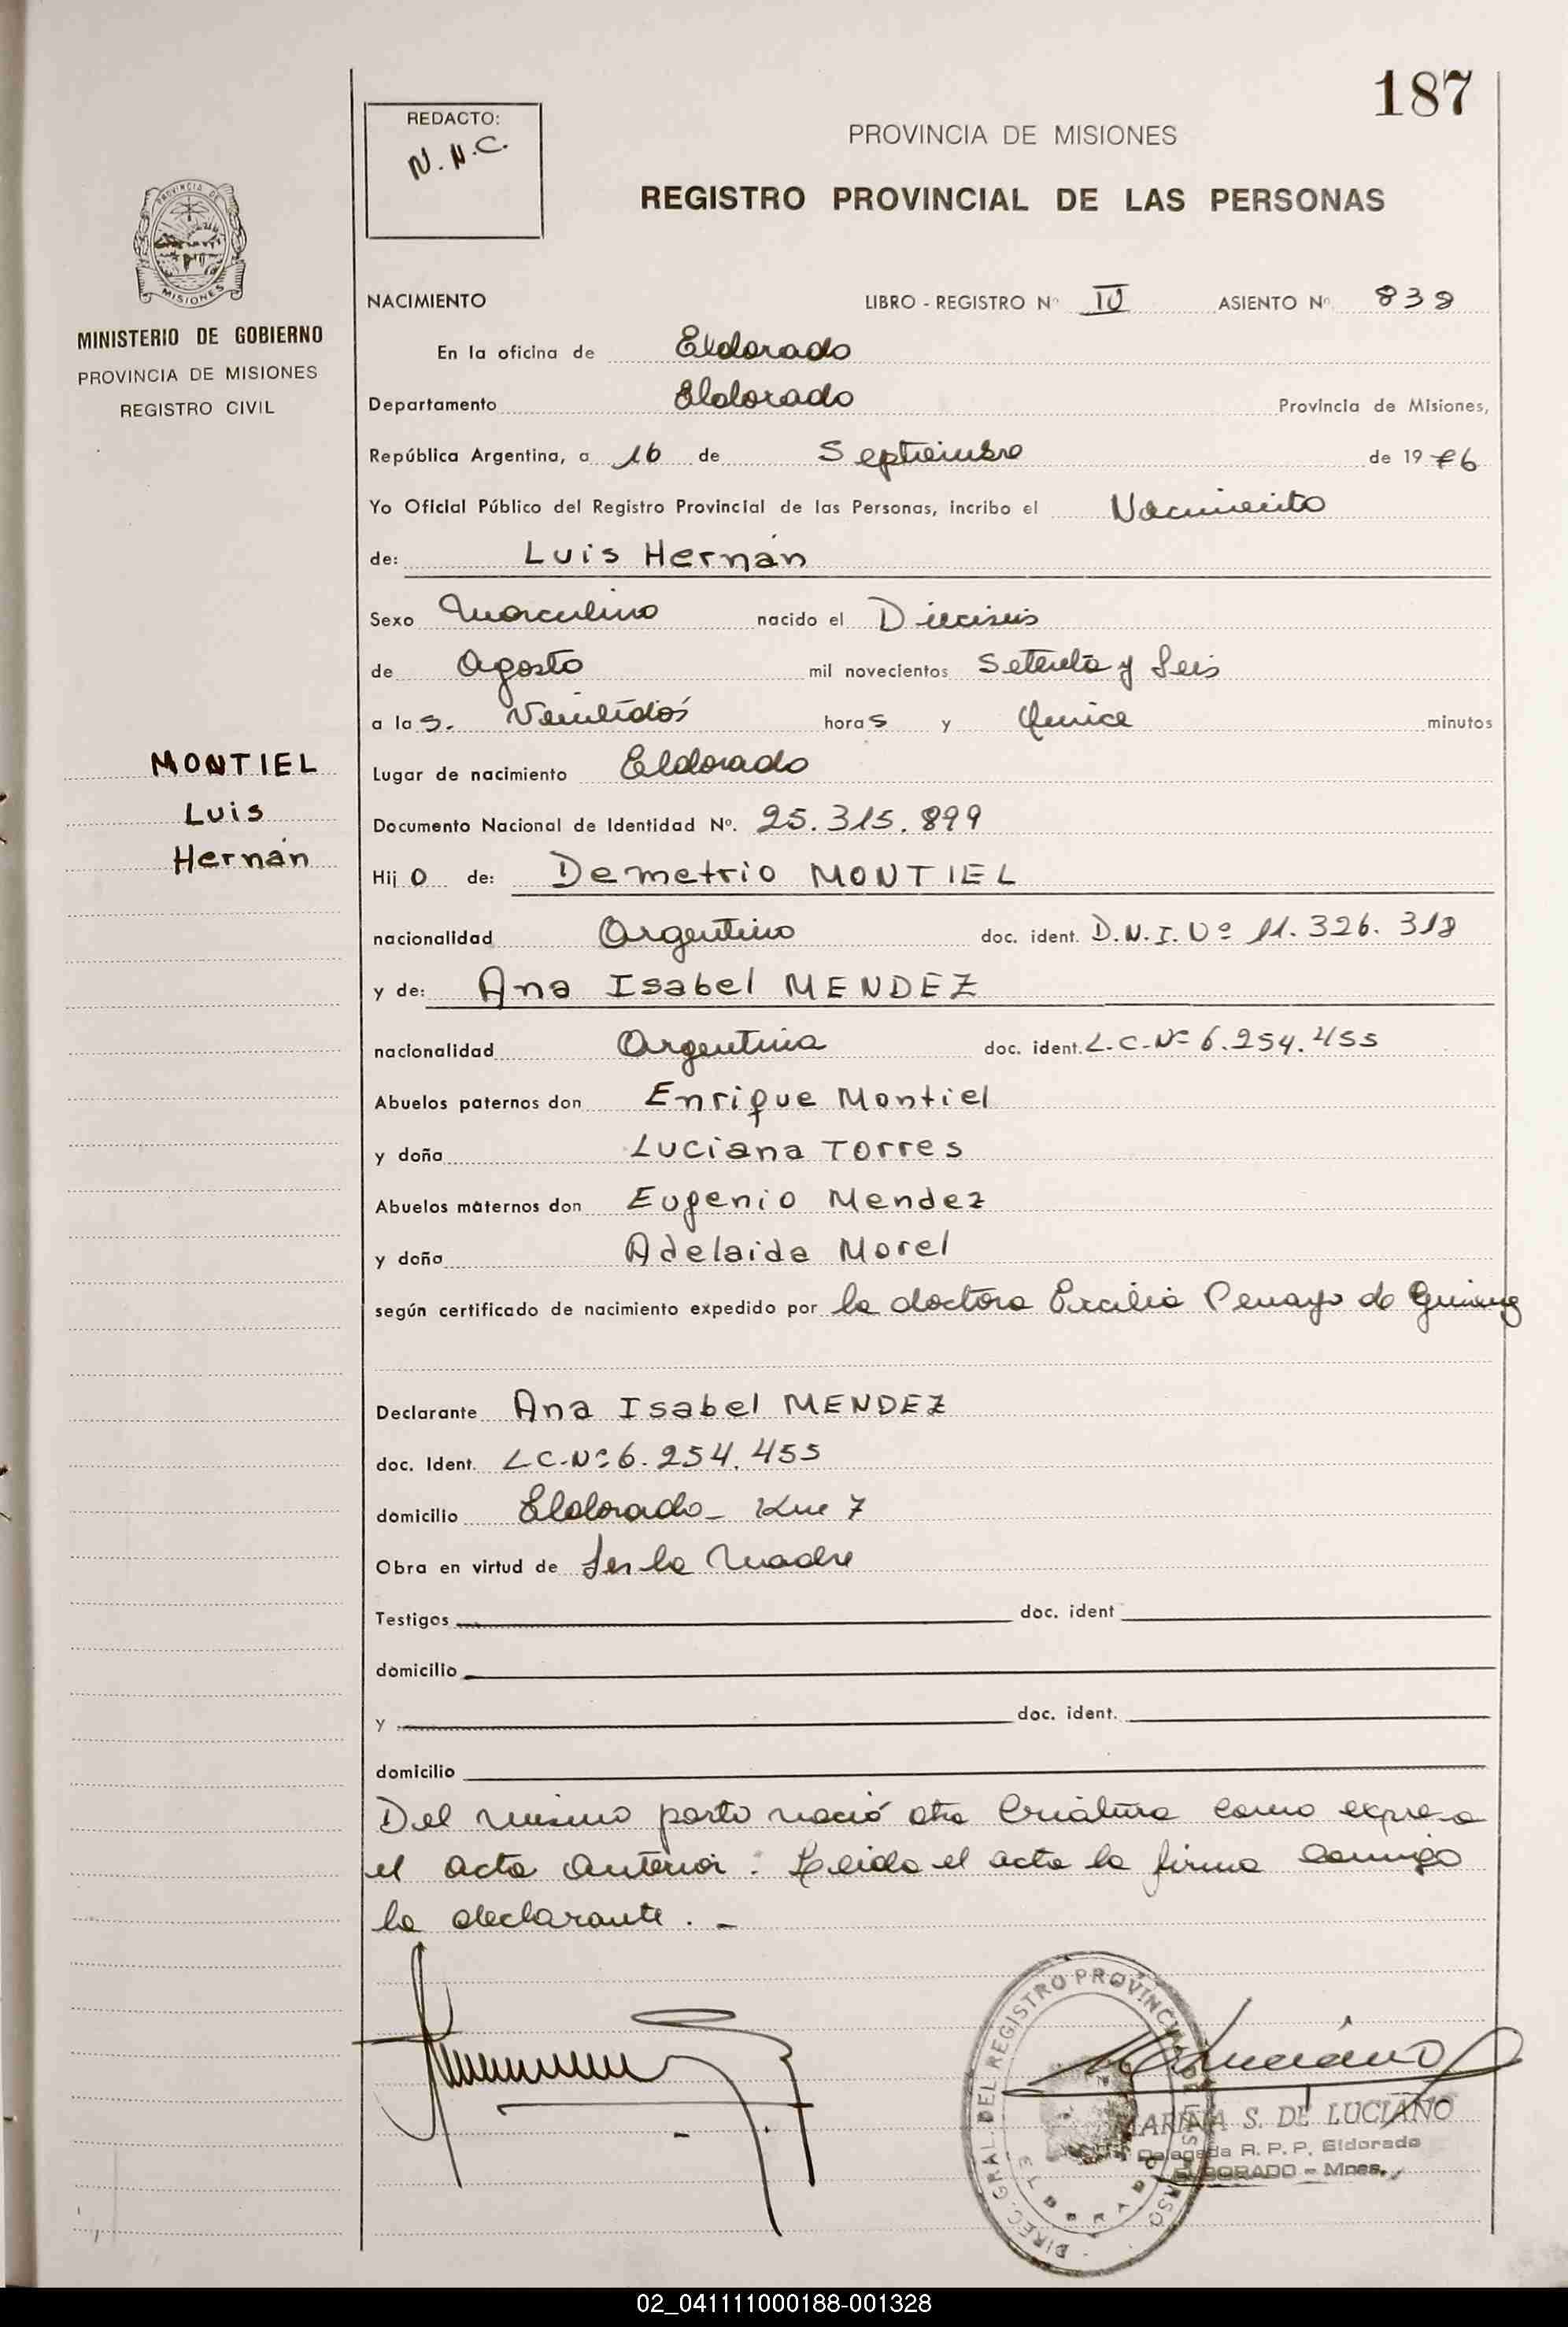 187
REDACTO:
N. N. C.
PROVINCIA DE MISIONES
REGISTRO PROVINCIAL DE LAS PERSONAS
PROVINCIA DE
MISIONES
MINISTERIO DE GOBIERNO
PROVINCIA DE MISIONES
REGISTRO CIVIL
MONTIEL
Luis
Hernán
NACIMIENTO LIBRO - REGISTRO Nº IV ASIENTO Nº 838
En la oficina de Eldorado
Departamento Eldorado Provincia de Misiones,
República Argentina, a 16 de Septiembre de 1976
Yo Oficial Público del Registro Provincial de las Personas, incribo el Nacimiento
de: Luis Hernán
Sexo Masculino nacido el Dieciseis
de Agosto mil novecientos Setenta y Seis
a las. Veintidós horas y Quince minutos
Lugar de nacimiento Eldorado
Documento Nacional de Identidad Nº. 25.315.899
Hijo de: Demetrio MONTIEL
nacionalidad Argentino doc. ident. D.N.I. Nº 11.326.318
y de: Ana Isabel MENDEZ
nacionalidad Argentina doc. ident. L.C.Nº 6.254.455
Abuelos paternos don Enrique Montiel
y doña Luciana Torres
Abuelos maternos don Eugenio Mendez
y doña Adelaida Morel
según certificado de nacimiento expedido por la doctora Ercilia Penayo de
Declarante Ana Isabel MENDEZ
doc. Ident. L.C.Nº 6.254.455
domicilio Eldorado - Km 7
Obra en virtud de Ser la Madre
Testigos doc. ident
domicilio
y doc. ident.
domicilio
Del mismo parto nació otra Criatura como expresa
el acta anterior. Leida el acta la firma conmigo
la declarante. -
DIREC. GRAL. DEL REGISTRO PROVINCIAL DE LAS PERSO
ELDORADO
MARINA S. DE LUCIANO
Delegada R. P. P. Eldorado
ELDORADO - Mnes.
02_041111000188-001328